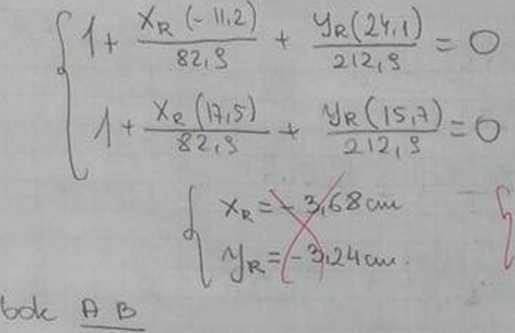 1 + x_R (-11,2) / 82,9 + y_R (24,1) / 212,9 = 0
1 + x_R (17,5) / 82,9 + y_R (15,7) / 212,9 = 0
x_R = -3,68 cm
y_R = -3,24 cm.
bok A B